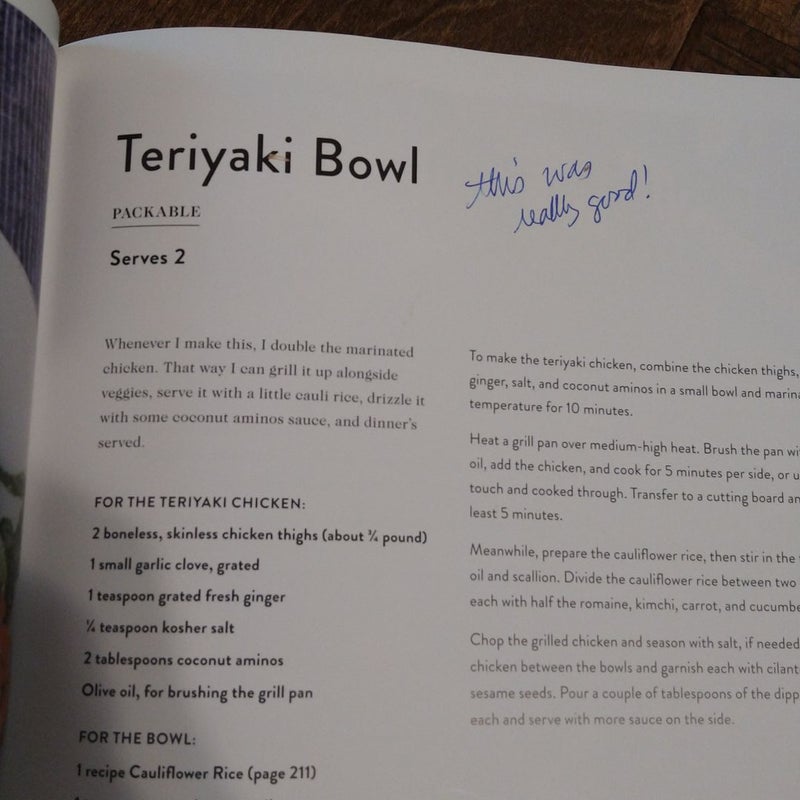 Teriyaki Bowl
this was
really good!
PACKABLE
Serves 2
Whenever I make this, I double the marinated
chicken. That way I can grill it up alongside
veggies, serve it with a little cauli rice, drizzle it
with some coconut aminos sauce, and dinner's
served.
FOR THE TERIYAKI CHICKEN:
2 boneless, skinless chicken thighs (about ¾ pound)
1 small garlic clove, grated
1 teaspoon grated fresh ginger
¼ teaspoon kosher salt
2 tablespoons coconut aminos
Olive oil, for brushing the grill pan
FOR THE BOWL:
1 recipe Cauliflower Rice (page 211)
To make the teriyaki chicken, combine the chicken thighs,
ginger, salt, and coconut aminos in a small bowl and
temperature for 10 minutes.
Heat a grill pan over medium-high heat. Brush the pan
oil, add the chicken, and cook for 5 minutes per side, or
touch and cooked through. Transfer to a cutting board
least 5 minutes.
Meanwhile, prepare the cauliflower rice, then stir in the
oil and scallion. Divide the cauliflower rice between two
each with half the romaine, kimchi, carrot, and
Chop the grilled chicken and season with salt, if needed
chicken between the bowls and garnish each with
sesame seeds. Pour a couple of tablespoons of the
each and serve with more sauce on the side.